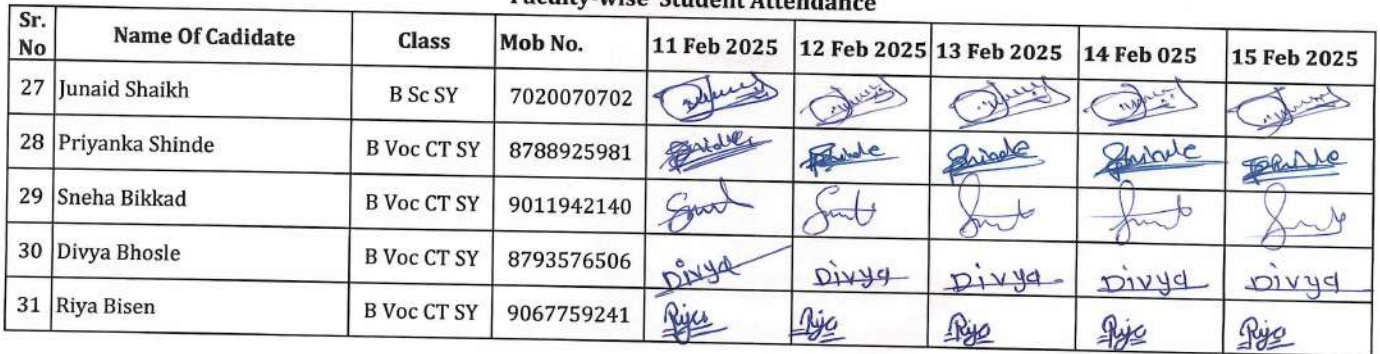 Faculty-wise Student Attendance
Sr. No Name Of Cadidate Class Mob No. 11 Feb 2025 12 Feb 2025 13 Feb 2025 14 Feb 025 15 Feb 2025
27 Junaid Shaikh B Sc SY 7020070702
28 Priyanka Shinde B Voc CT SY 8788925981 Shinde Shinde Shinde Shinde Shinde
29 Sneha Bikkad B Voc CT SY 9011942140
30 Divya Bhosle B Voc CT SY 8793576506 Divya Divya Divya Divya Divya
31 Riya Bisen B Voc CT SY 9067759241 Riya Riya Riya Riya Riya